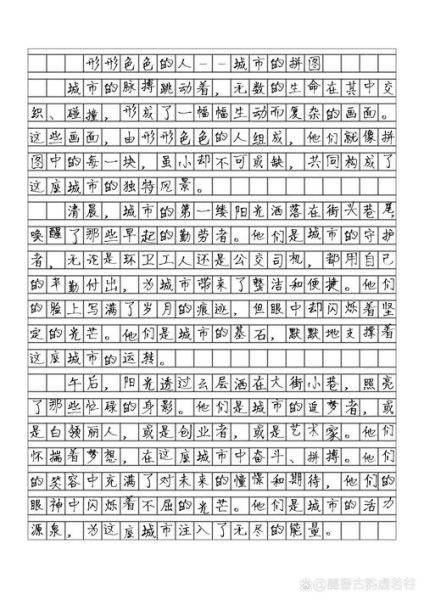 形形色色的人--城市的拼图
城市的脉搏跳动着，无数的生命在其中交
织、碰撞，形成了一幅幅生动而复杂的画面。
这些画面，由形形色色的人组成，他们就像拼
图中的每一块，虽小却不可或缺，共同构成了
这座城市的独特风景。
清晨，城市的第一缕阳光洒落在街头巷尾，
唤醒了那些早起的勤劳者。他们是城市的守护
者，无论是环卫工人还是公交司机，都用自己
的辛勤付出，为城市带来了整洁和便捷。他们
的脸上写满了岁月的痕迹，但眼中却闪烁着坚
定的光芒。他们是城市的基石，默默地支撑着
这座城市的运转。
午后，阳光透过云层洒在大街小巷，照亮
了那些忙碌的身影。他们是城市的追梦者，或
是白领丽人，或是创业者，或是艺术家。他们
怀揣着梦想，在这座城市中奋斗、拼搏。他们
的笑容中充满了对未来的憧憬和期待，他们的
眼神中闪烁着不屈的光芒。他们是城市的活力
源泉，为这座城市注入了无尽的能量。